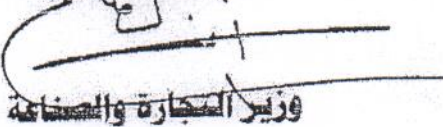 وزير التجارة والصناعة